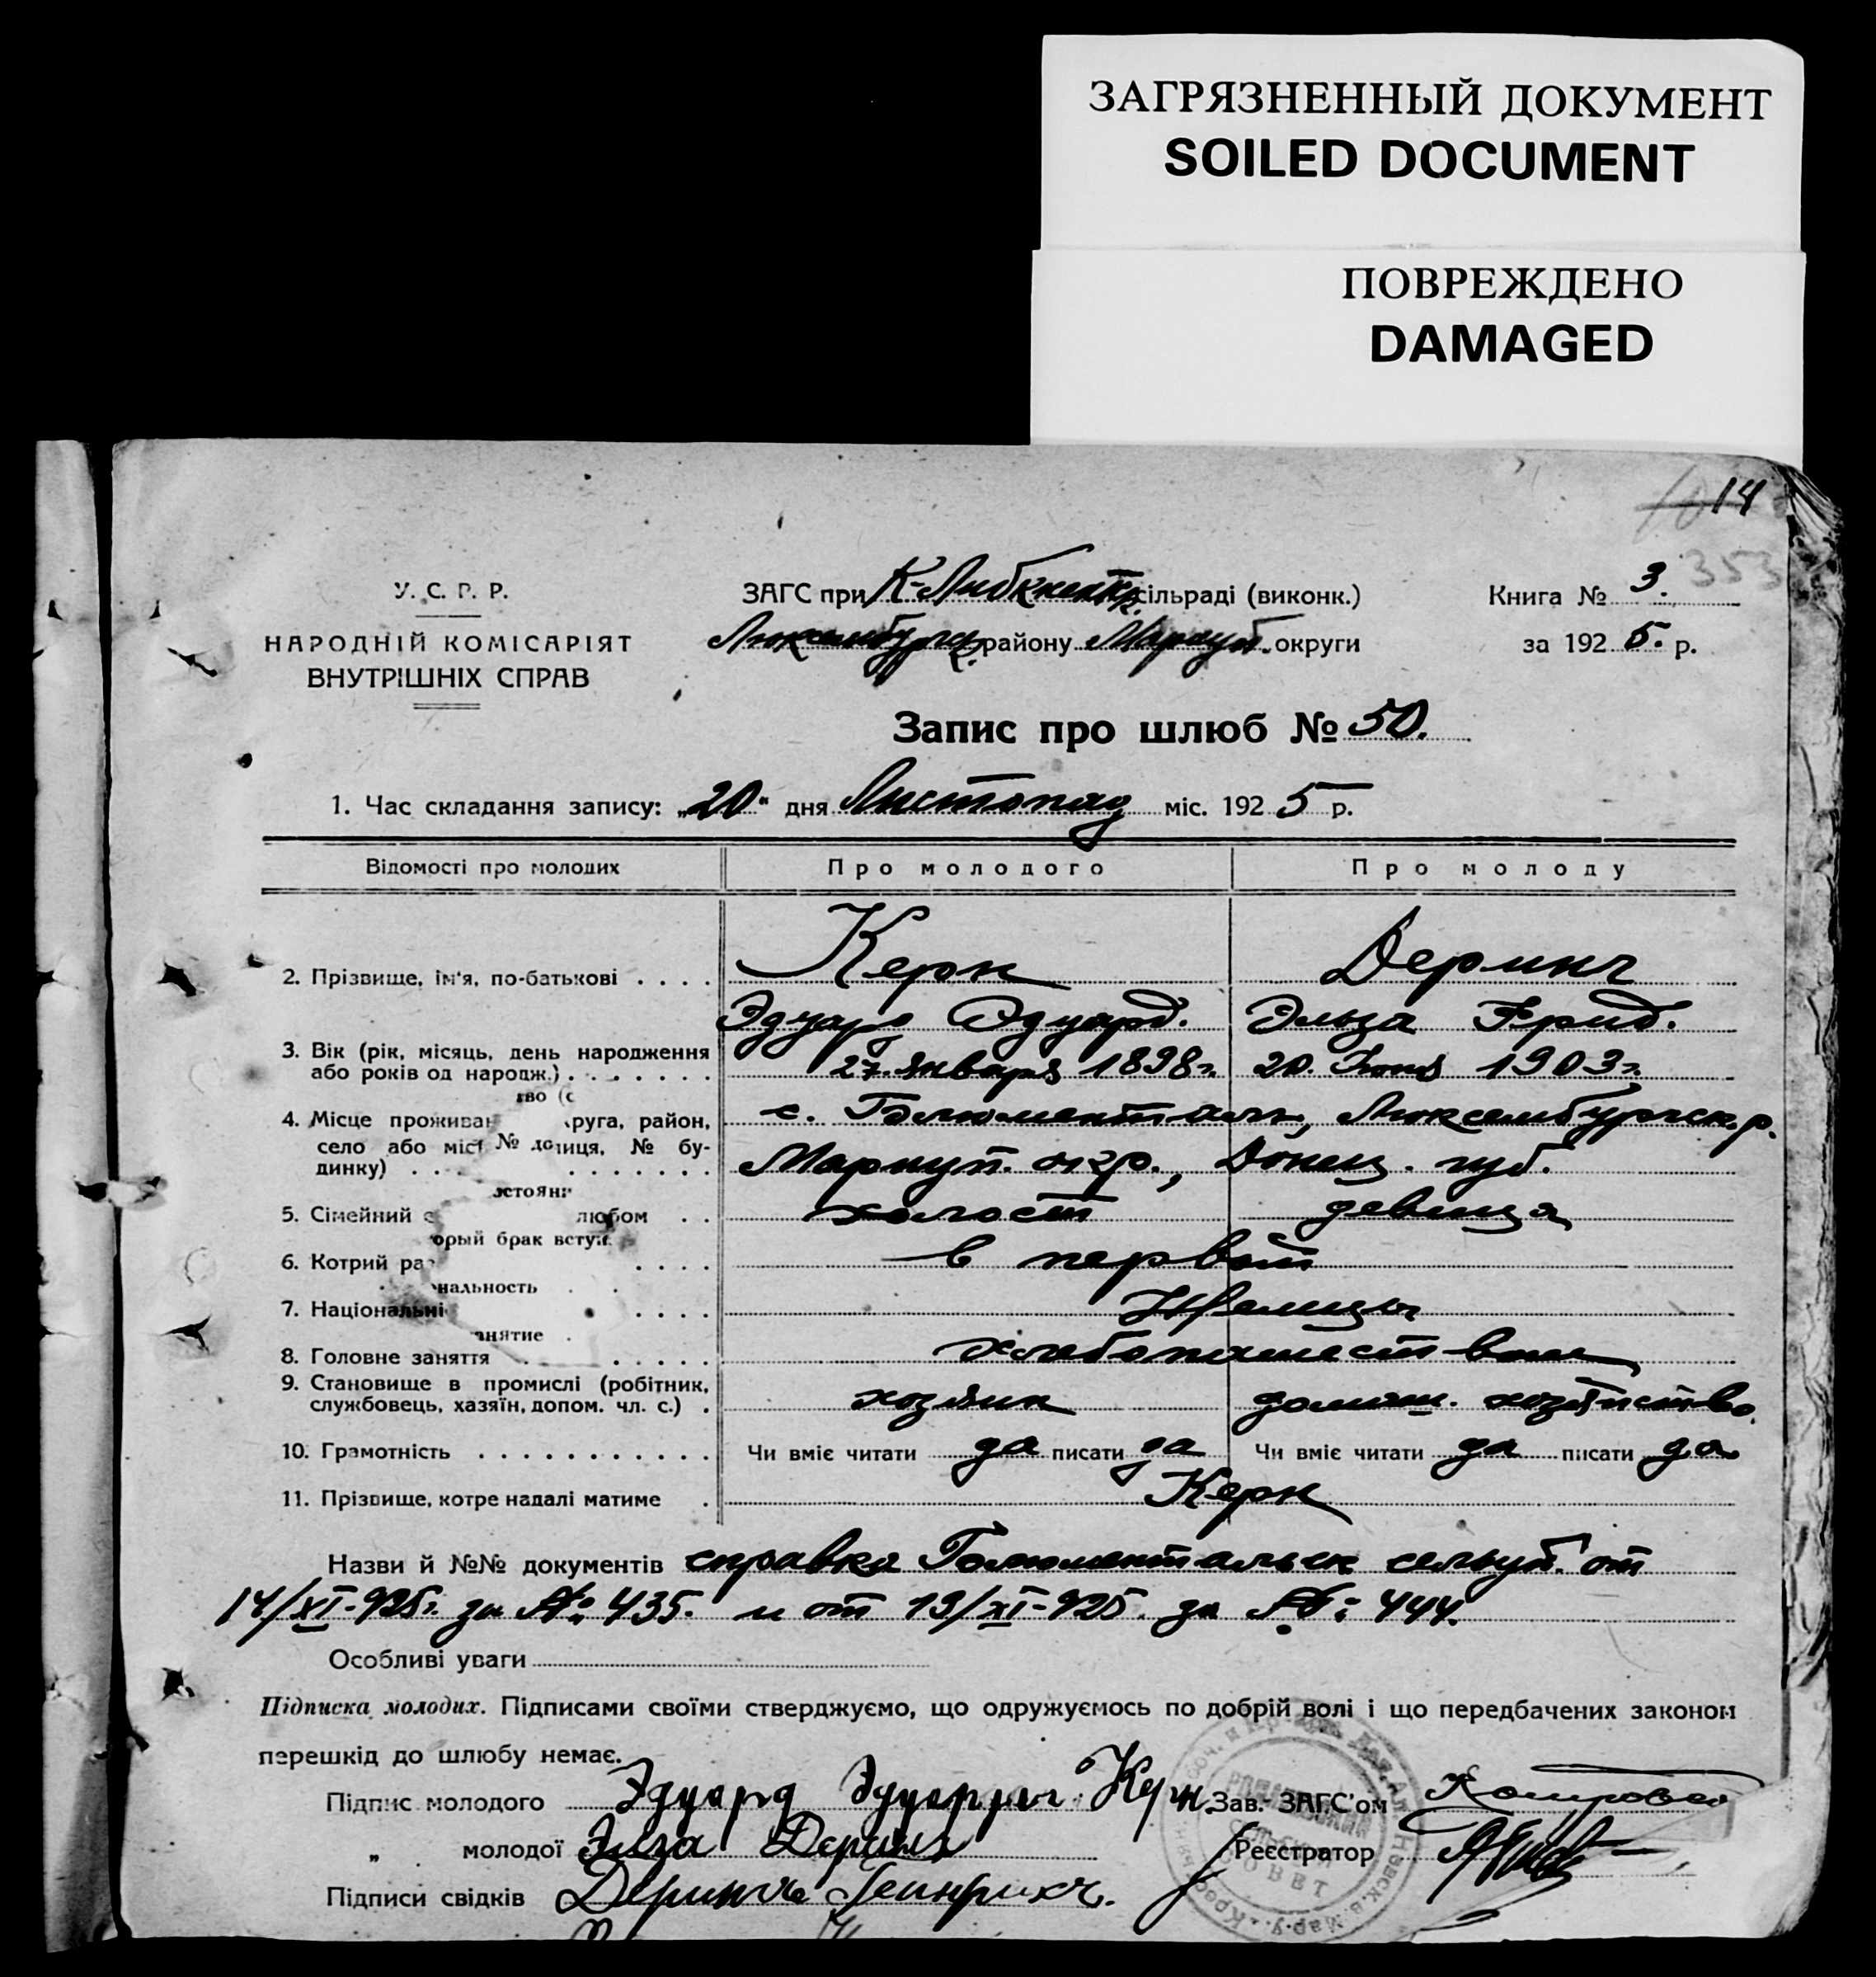 ЗАГРЯЗНЕННЫЙ ДОКУМЕНТ
SOILED DOCUMENT
ПОВРЕЖДЕНО
DAMAGED
14
353
У. С. Р. Р.
НАРОДНІЙ КОМІСАРІЯТ
ВНУТРІШНІХ СПРАВ
ЗАГС при К-Либкнехт. сільраді (виконк.)
Люксембургск. району Мариуп. округи
Книга № 3.
за 1925. р.
Запис про шлюб № 50.
1. Час складання запису: „20" дня Листопад міс. 1925 р.
Відомості про молодих
Про молодого
Про молоду
2. Прізвище, ім'я, по-батькові . . . .
Керн
Деринг
Эдуард Эдуард.
Эльза Фрид.
3. Вік (рік, місяць, день народження
або років од народж.) . . . . . . .
27. января 1898 г.
20. Июня 1903 г.
тво (с
4. Місце проживан руга, район,
с. Голюменталь, Люксембургск. р.
село або міст № до лиця, № бу-
динку) . . . . . . . . . .
Мариуп. окр., Донец. губ.
остоян
5. Сімейний с любом . .
холост
девица
орый брак вступ.
6. Котрий ра . . . .
в первой
нальность
7. Національні . . . .
Немцы
анятие
8. Головне заняття . . . . . .
хлебопашеством
9. Становище в промислі (робітник,
службовець, хазяїн, допом. чл. с.) .
хозяин
домаш. хозяйство.
10. Грамотність . . . . . . . . . . .
Чи вміє читати да писати да
Чи вміє читати да писати да
11. Прізвище, котре надалі матиме .
Керн
Назви й №№ документів справка Голюментальск сельуп. от
14/XI-925 г. за №: 435. и от 19/XI-925. за №: 444.
Особливі уваги
Підписка молодих. Підписами своїми стверджуємо, що одружуємось по добрій волі і що передбачених законом
перешкід до шлюбу немає.
Підпис молодого Эдуард Эдуардыч Керн
Зав. ЗАГС'ом
„ молодої Элза Деринг
Реєстратор
Підписи свідків Деринг Генрих